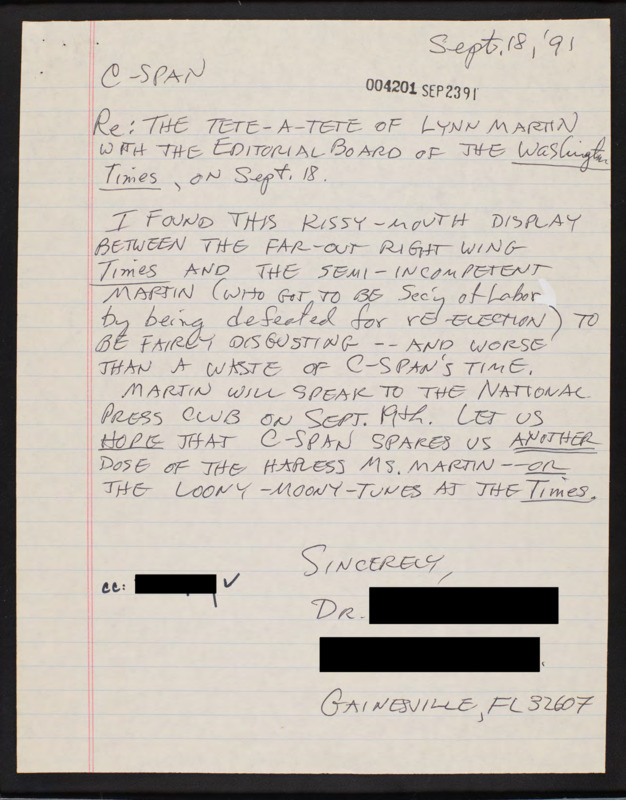 Sept. 18, '91
C-SPAN
004201 SEP 23 91
Re: THE TETE-A-TETE OF LYNN MARTIN
WITH THE EDITORIAL BOARD OF THE Washington
Times, ON Sept. 18.
I FOUND THIS KISSY-MOUTH DISPLAY
BETWEEN THE FAR-OUT RIGHT WING
Times AND THE SEMI-INCOMPETENT
MARTIN (WHO GOT TO BE Sec'y of Labor
by being defeated for RE-ELECTION) TO
BE FAIRLY DISGUSTING -- AND WORSE
THAN A WASTE OF C-SPAN'S TIME.
MARTIN WILL SPEAK TO THE NATIONAL
PRESS CLUB ON SEPT. 19th. LET US
HOPE THAT C-SPAN SPARES US ANOTHER
DOSE OF THE HAPLESS MS. MARTIN -- OR
THE LOONY-MOONY-TUNES AT THE Times.
SINCERELY,
cc:
DR.
GAINESVILLE, FL 32607